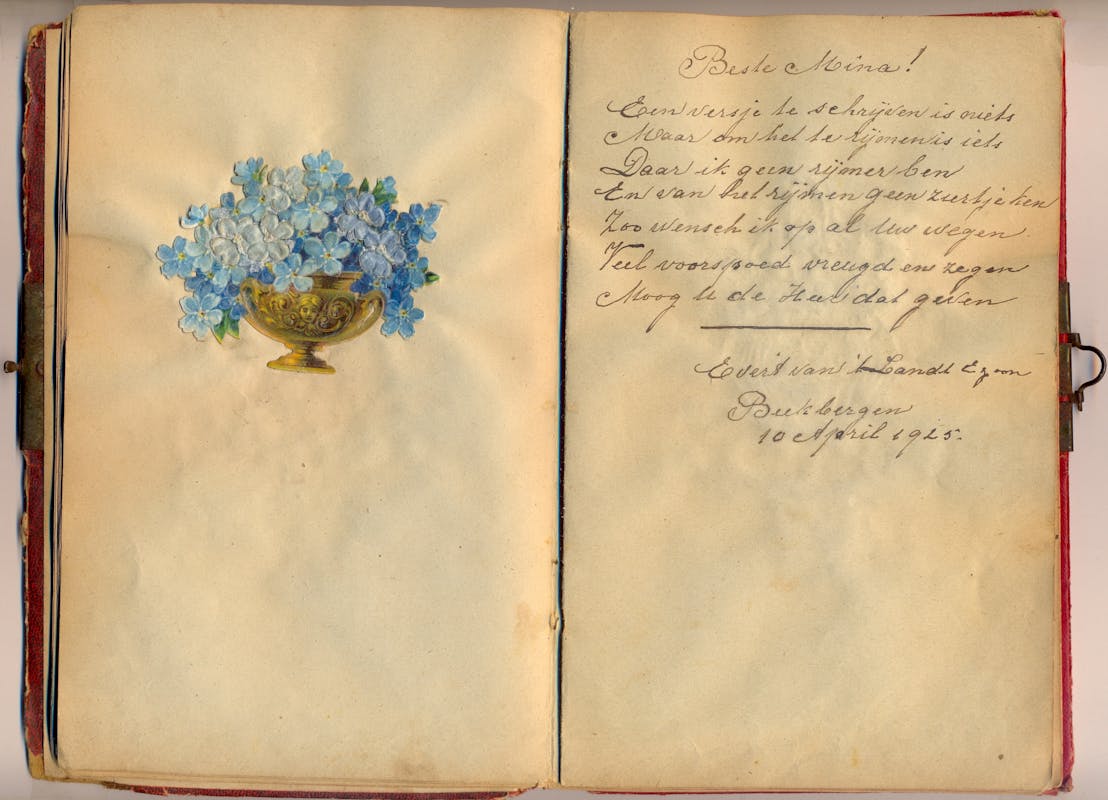 Beste Mina!
Een versje te schrijven is niets
Maar om het te rijmen is iets
Daar ik geen rijmer ben
En van het rijmen geen ziertje ken
Zoo wensch ik op al Uw wegen
Veel voorspoed vreugd en zegen
Moog U de Heer dat geven
Evert van 't Landt Ezoon
Beekbergen
10 April 1925.